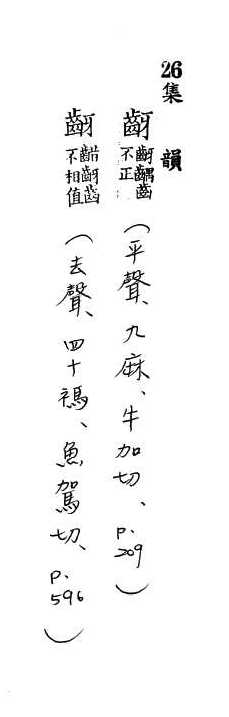 26集 韻
齖 齖齵齒不正(平聲、九麻、牛加切、p.209)
齖 齰齖齒不相值(去聲、四十禡、魚駕切、p.596)